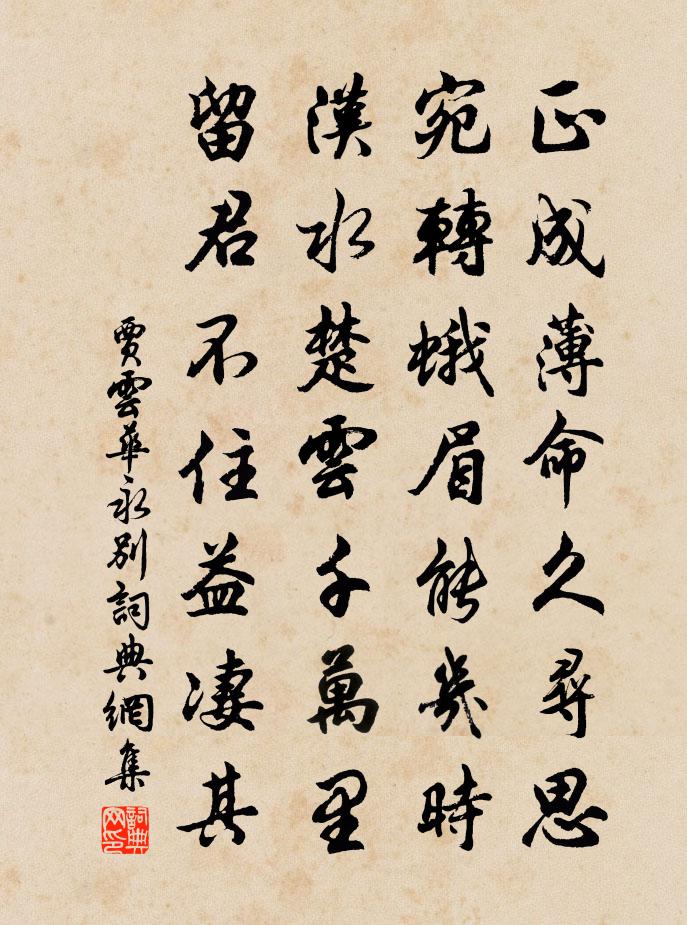 正成薄命久尋思
宛轉蛾眉能幾時
漢水楚雲千萬里
留君不住益凄其
賈雲華永別詞典網集
詞典網印